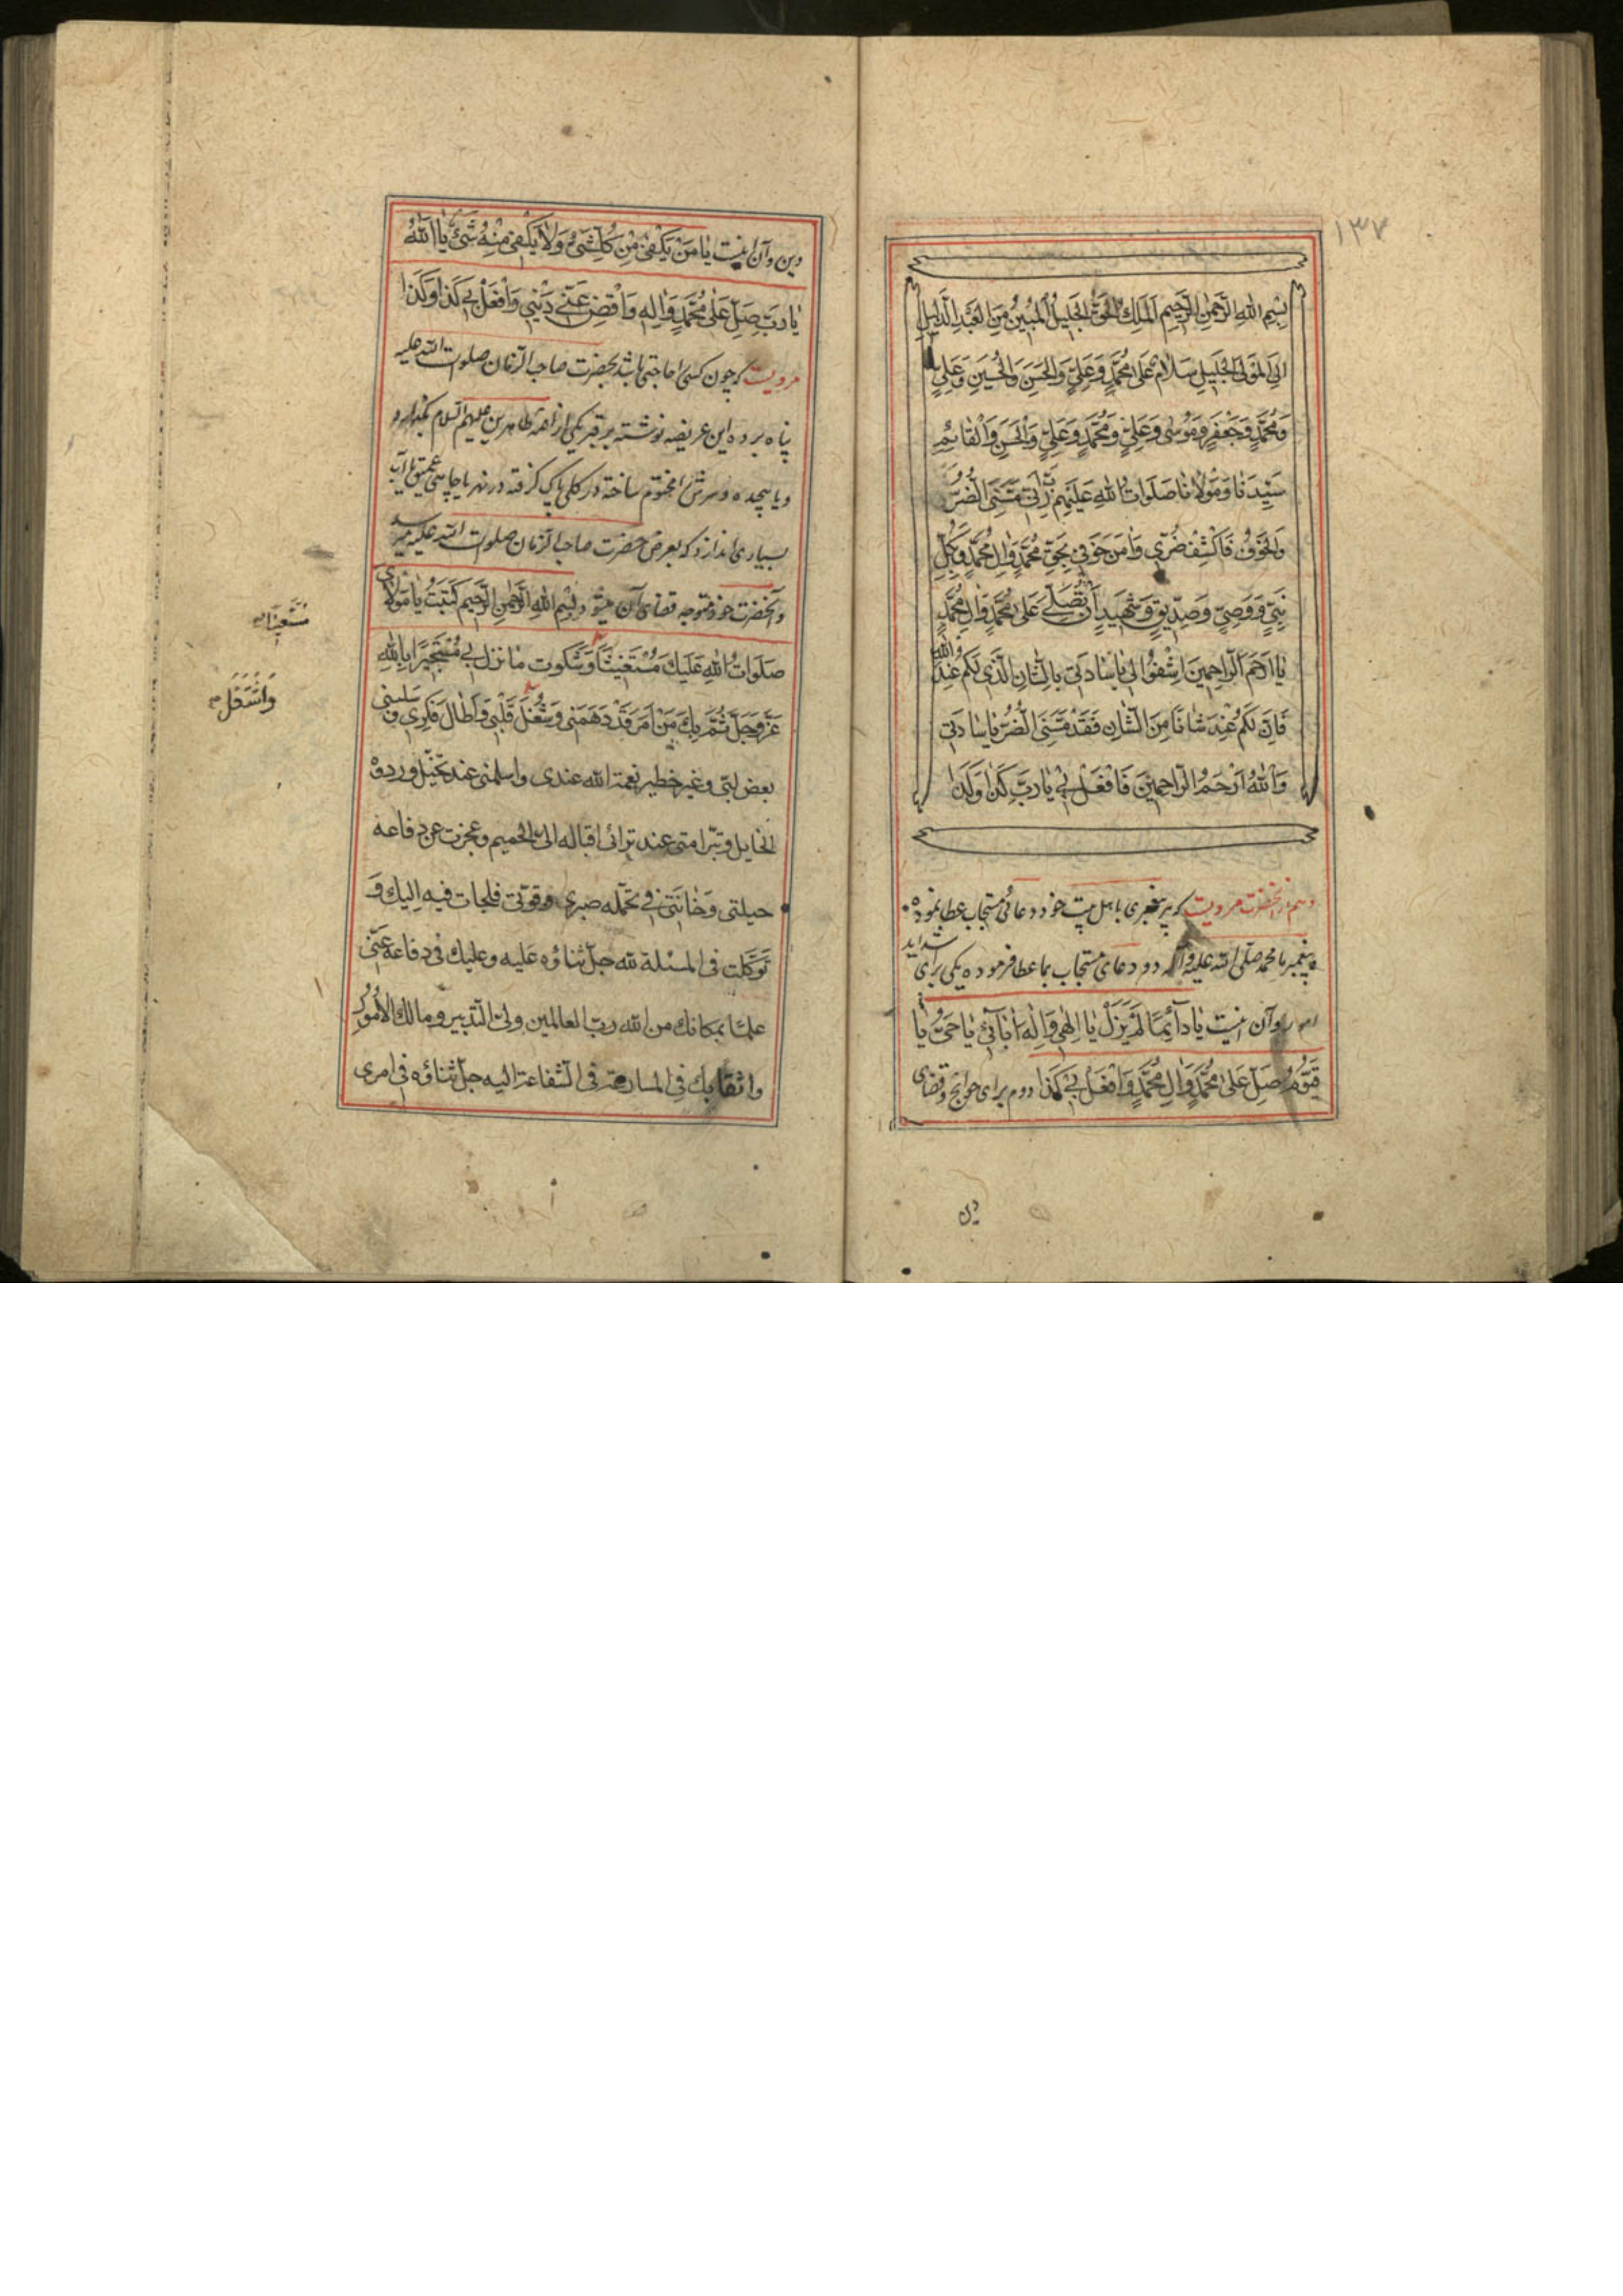 ۱۳۷
بِسْمِ اللهِ الرَّحْمٰنِ الرَّحِيمِ اَلْمَلِكِ الْحَقِّ الْجَلِيلِ الْمُبِينِ مِنَ الْعَبْدِ الذَّلِيلِ
اِلَى الْمَوْلَى الْجَلِيلِ سَلَامٌ عَلٰى مُحَمَّدٍ وَعَلِيٍّ وَالْحَسَنِ وَالْحُسَيْنِ وَعَلِيٍّ
وَمُحَمَّدٍ وَجَعْفَرٍ وَمُوسٰى وَعَلِيٍّ وَمُحَمَّدٍ وَعَلِيٍّ وَالْحَسَنِ وَالْقَائِمِ
سَيِّدِنَا وَمَوْلَانَا صَلَوَاتُ اللهِ عَلَيْهِمْ رَبِّ اِنّى مَسَّنِىَ الضُّرُّ
وَالْخَوْفُ فَاكْشِفْ ضُرّى وَاٰمِنْ خَوْفى بِحَقِّ مُحَمَّدٍ وَاٰلِ مُحَمَّدٍ وَبِكُلِّ
نَبِيٍّ وَوَصِيٍّ وَصِدّيقٍ وَشَهيدٍ اَنْ تُصَلِّىَ عَلٰى مُحَمَّدٍ وَاٰلِ مُحَمَّدٍ
يَا اَرْحَمَ الرَّاحِمِينَ اِشْفَعُوا لى يَا سَادَتى بِالشَّانِ الَّذى لَكُمْ عِنْدَ اللهِ
فَاِنَّ لَكُمْ عِنْدَهُ شَانًا مِنَ الشَّانِ فَقَدْ مَسَّنِىَ الضُّرُّ يَا سَادَتى
وَاللهُ اَرْحَمُ الرَّاحِمِينَ فَافْعَلْ بى يَا رَبِّ كَذَا وَكَذَا
و هم از آنحضرت مرويست كه هر پيغمبرى باهل بيت خود دعائى مستجاب عطا نموده
پيغمبر ما محمد صلّى الله عليه وآله دو دعاى مستجاب بما عطا فرموده يكى براى شدايد
وآن اينست يَا دَائِمًا لَمْ يَزَلْ يَا اِلٰهى وَاِلٰهَ اٰبَائى يَا حَىُّ يَا
قَيُّومُ صَلِّ عَلٰى مُحَمَّدٍ وَاٰلِ مُحَمَّدٍ وَافْعَلْ بى كَذَا دوم براى حوائج وقضاى
دين
دين وآن اينست يَا مَنْ يَكْفى مِنْ كُلِّ شَىْءٍ وَلَا يَكْفى مِنْهُ شَىْءٌ يَا اَللهُ
يَا رَبِّ صَلِّ عَلٰى مُحَمَّدٍ وَاٰلِهِ وَاقْضِ عَنّى دَيْنى وَافْعَلْ بى كَذَا وَكَذَا
مرويست كه چون كسى را حاجتى باشد بحضرت صاحب الزمان صلوات الله عليه
پناه برده اين عريضه نوشته بر قبر يكى از ائمه طاهرين عليهم السلام بگذارد
ويا پيچده وسرش را مختوم ساخته در كلى پاك گرفته در نهر يا چاهى عميق يا آب
بسيارى اندازد كه بعرض حضرت صاحب الزمان صلوات الله عليه ميرسد
وآنحضرت خود متوجه قضاى آن ميشود بِسْمِ اللهِ الرَّحْمٰنِ الرَّحِيمِ كَتَبْتُ يَا مَوْلَاىَ
صَلَوَاتُ اللهِ عَلَيْكَ مُسْتَغِيثًا وَشَكَوْتُ مَا نَزَلَ بى مُسْتَجيرًا بِاللهِ
عَزَّ وَجَلَّ ثُمَّ بِكَ مِنْ اَمْرٍ قَدْ دَهَمَنى وَشَغَلَ قَلْبى وَاَطَالَ فِكْرى وَسَلَبَنى
بعض لبّى وغيّر خطير نعمة الله عندى واسلمنى عند تخيّل وروده
الخليل وتبّرأ منى عند ترائى اقباله الىّ الحميم وعجزت عن دفاعه
حيلتى وَخَانَنى فى تحمّله صبرى وقوّتى فلجات فيه اليك وَ
تَوَكَّلت فى المسئلة لله جلّ ثناؤه عليه وعليك فى دفاعه عنّى
علمًا بمكانك من الله ربّ العالمين ولىّ التدبير ومالك الاُمُور
واثقًا بك فى المسارعة فى الشفاعة اليه جلّ ثناؤه فى امرى